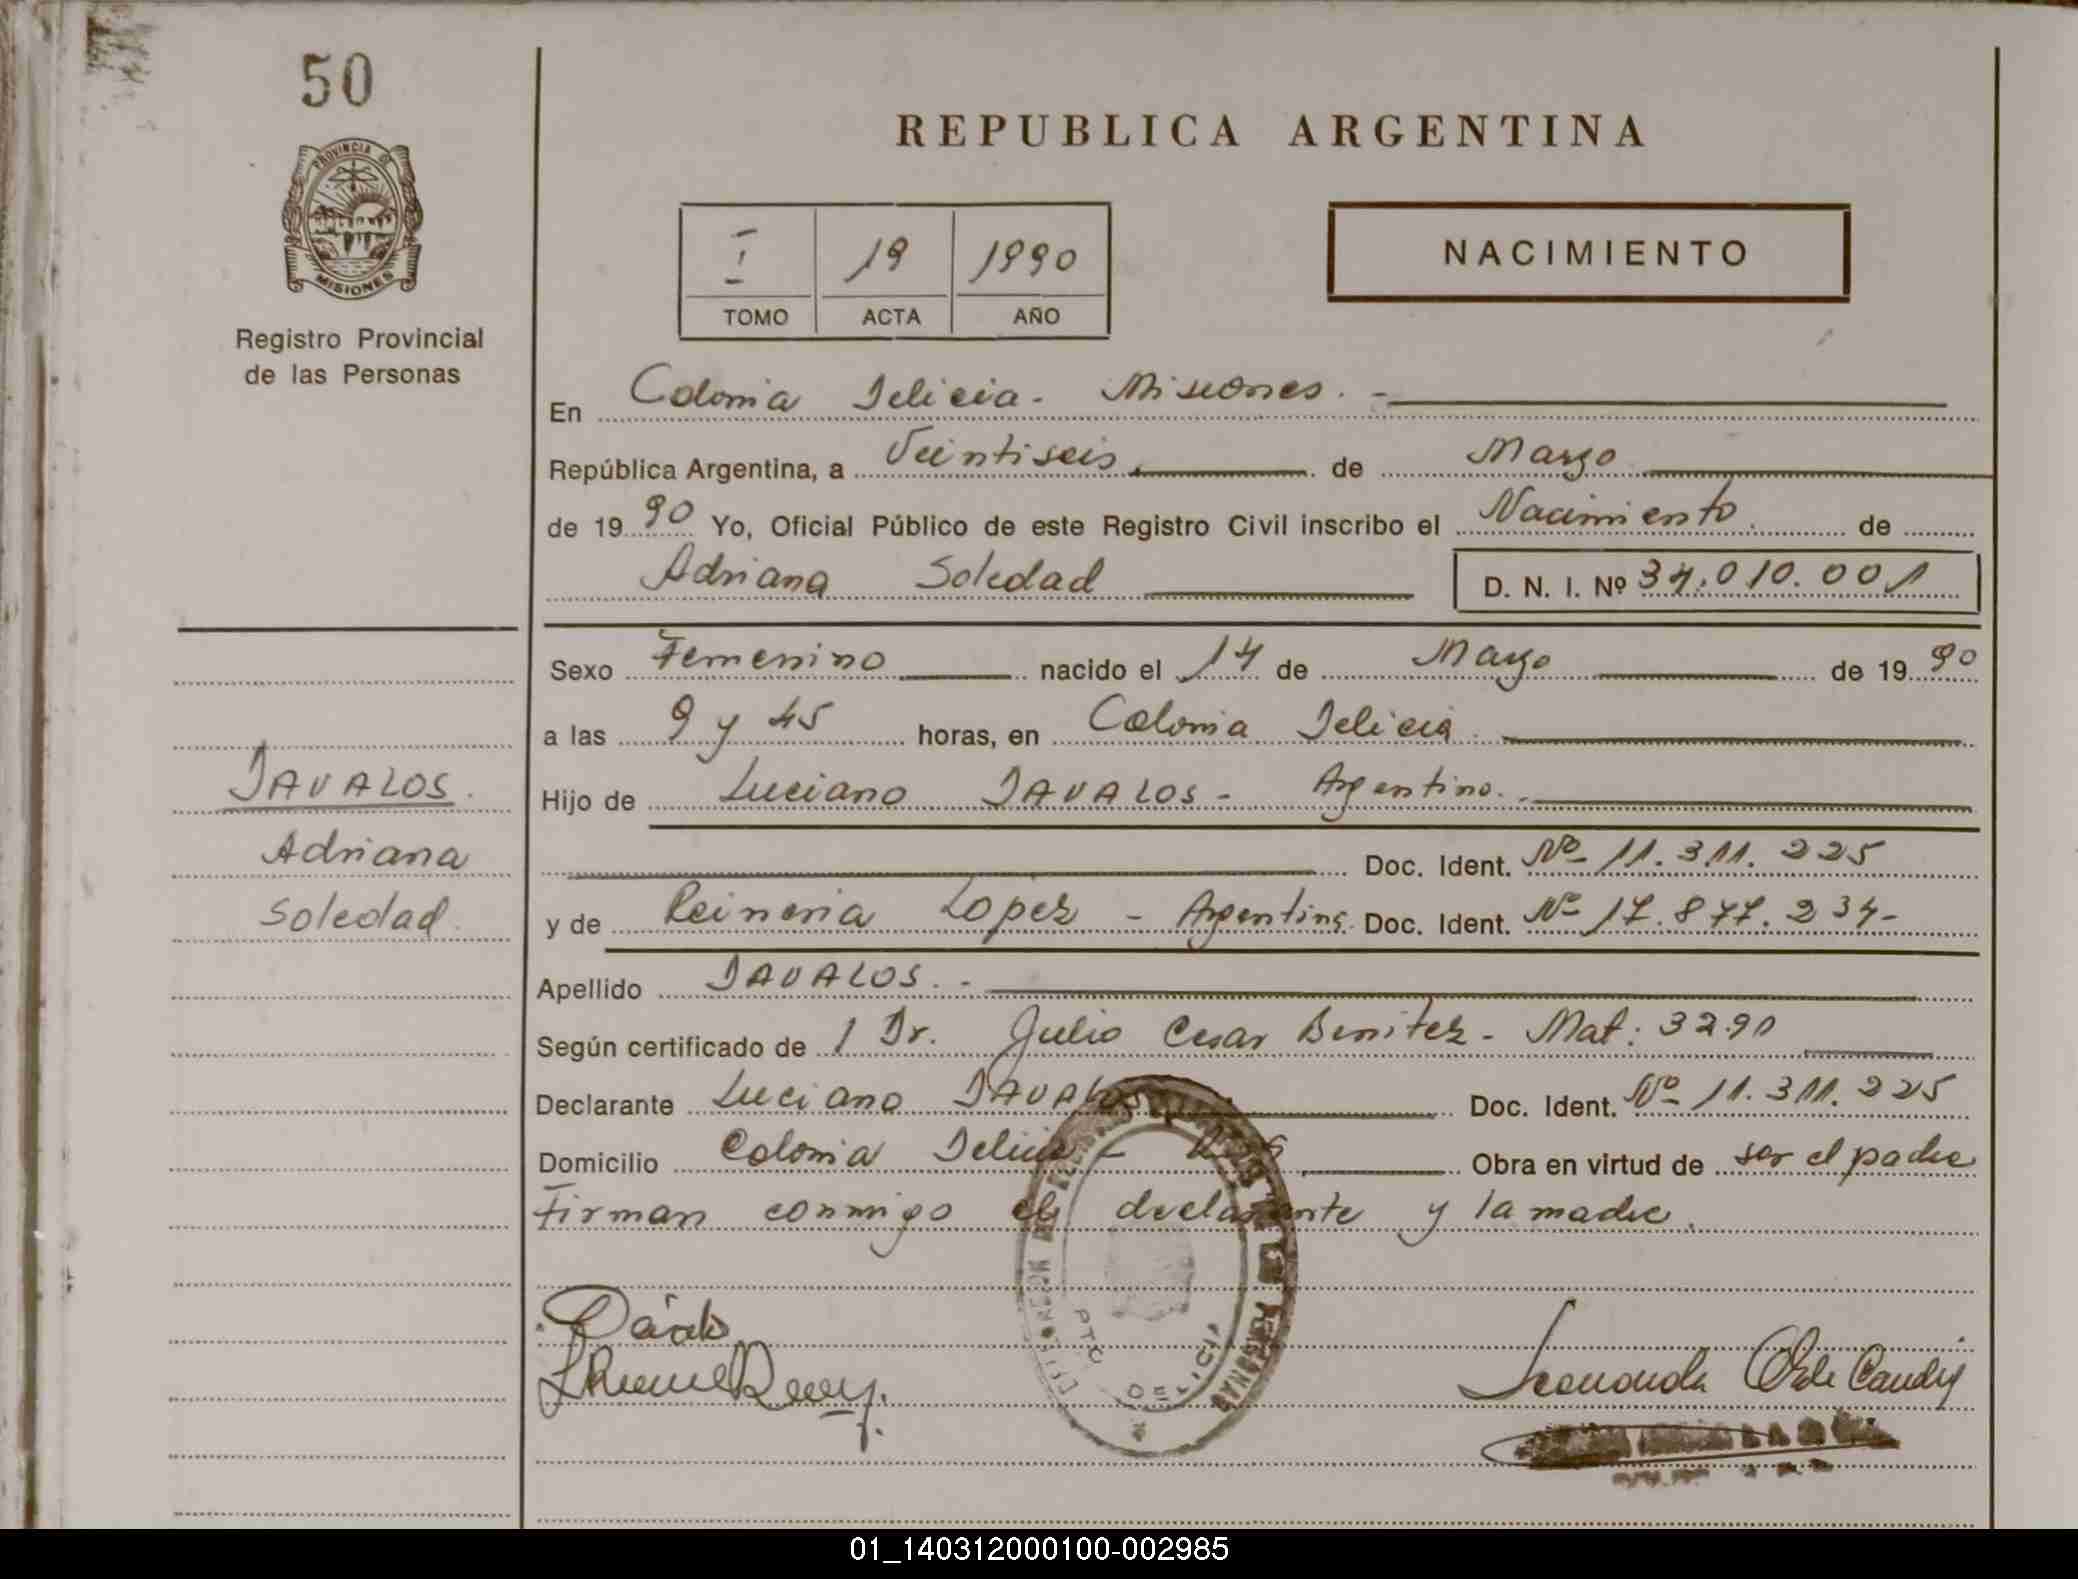 50
PROVINCIA D
MISIONES
Registro Provincial
de las Personas
REPUBLICA ARGENTINA
I 19 1990
TOMO ACTA AÑO
NACIMIENTO
En Colonia Delicia - Misiones. -
República Argentina, a Veintiseis. de Marzo
de 1990 Yo, Oficial Público de este Registro Civil inscribo el Nacimiento de
Adriana Soledad D. N. I. Nº 34.010.001
Sexo Femenino nacido el 14 de Marzo de 1990
a las 9 y 45 horas, en Colonia Delicia.
DAVALOS.
Adriana
Soledad
Hijo de Luciano DAVALOS - Argentino. -
Doc. Ident. Nº 11.311.225
y de Reineria Lopez - Argentina. Doc. Ident. Nº 17.877.234-
Apellido DAVALOS. -
Según certificado de 1 Dr. Julio Cesar Benitez - Mat: 3290
Declarante Luciano DAVALOS Doc. Ident. Nº 11.311.225
Domicilio Colonia Delicia - Obra en virtud de ser el padre
Firman conmigo el declarante y la madre.
PTO DELICIA
01_140312000100-002985